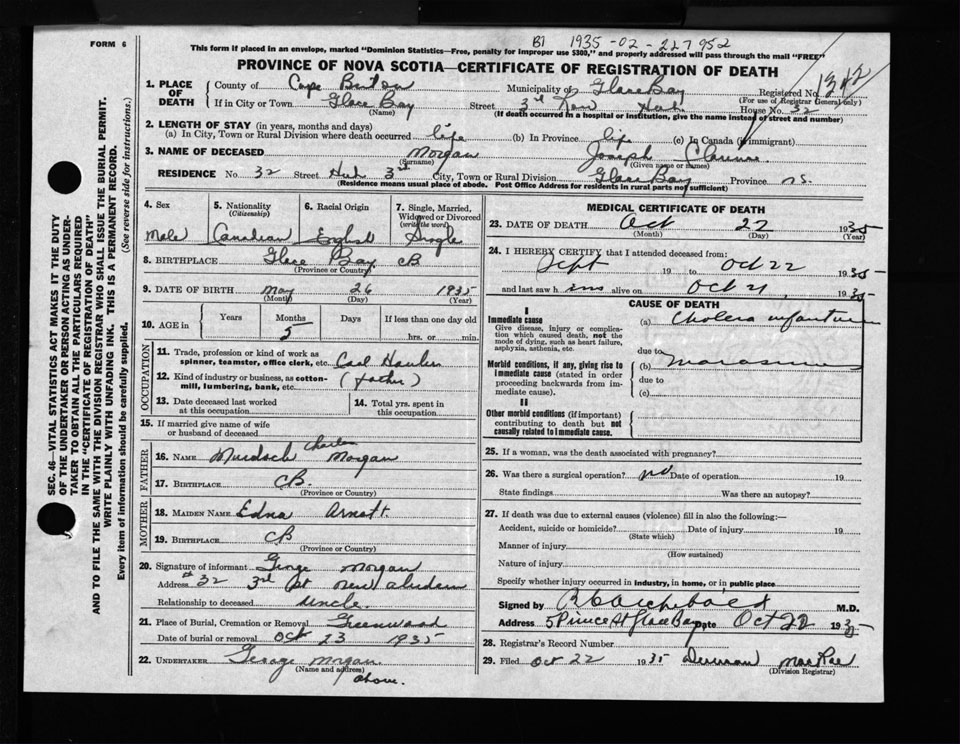 FORM 6
B1 1935-02-227952
This form if placed in an envelope, marked "Dominion Statistics—Free, penalty for improper use $300," and properly addressed will pass through the mail "FREE"
PROVINCE OF NOVA SCOTIA—CERTIFICATE OF REGISTRATION OF DEATH
1. PLACE OF DEATH
County of Cape Breton Municipality of Glace Bay Registered No. 1342
(For use of Registrar General only)
If in City or Town Glace Bay Street 3rd Row Hub House No. 32
(Name) (If death occurred in a hospital or institution, give the name instead of street and number)
2. LENGTH OF STAY (in years, months and days)
(a) In City, Town or Rural Division where death occurred life (b) In Province life (c) In Canada (if immigrant)
3. NAME OF DECEASED Morgan Joseph Clarence
(Surname) (Given name or names)
RESIDENCE No. 32 Street Hub 3rd City, Town or Rural Division Glace Bay Province NS.
(Residence means usual place of abode. Post Office Address for residents in rural parts not sufficient)
4. Sex
Male
5. Nationality
(Citizenship)
Canadian
6. Racial Origin
English
7. Single, Married, Widowed or Divorced
(write the word)
Single
8. BIRTHPLACE Glace Bay CB
(Province or Country)
9. DATE OF BIRTH May 26 1935
(Month) (Day) (Year)
10. AGE in
Years Months Days If less than one day old
5 hrs. or min.
OCCUPATION
11. Trade, profession or kind of work as spinner, teamster, office clerk, etc. Coal Hauler
12. Kind of industry or business, as cotton-mill, lumbering, bank, etc. (Father)
13. Date deceased last worked at this occupation
14. Total yrs. spent in this occupation
15. If married give name of wife or husband of deceased
FATHER
16. NAME Murdock Charles Morgan
17. BIRTHPLACE CB.
(Province or Country)
MOTHER
18. MAIDEN NAME Edna Arnett.
19. BIRTHPLACE CB
(Province or Country)
20. Signature of informant George Morgan
Address #32 3rd St New Aberdeen
Relationship to deceased Uncle.
21. Place of Burial, Cremation or Removal Greenwood
Date of burial or removal Oct 23 1935
22. UNDERTAKER George Morgan
(Name and address)
above.
MEDICAL CERTIFICATE OF DEATH
23. DATE OF DEATH Oct 22 1935
(Month) (Day) (Year)
24. I HEREBY CERTIFY that I attended deceased from:
Sept 19 to Oct 22 1935
and last saw him alive on Oct 21, 1935
CAUSE OF DEATH
I
Immediate cause
Give disease, injury or complication which caused death, not the mode of dying, such as heart failure, asphyxia, asthenia, etc.
(a) Cholera infantum
due to
Morbid conditions, if any, giving rise to immediate cause (stated in order proceeding backwards from immediate cause).
(b) Marasmus
due to
(c)
II
Other morbid conditions (if important) contributing to death but not causally related to immediate cause.
25. If a woman, was the death associated with pregnancy?
26. Was there a surgical operation? no Date of operation 19
State findings Was there an autopsy?
27. If death was due to external causes (violence) fill in also the following:—
Accident, suicide or homicide? Date of injury 19
(State which)
Manner of injury
(How sustained)
Nature of injury
Specify whether injury occurred in industry, in home, or in public place
Signed by M.D.
Address 5 Prince St Glace Bay Date Oct 22 1935
28. Registrar's Record Number
29. Filed Oct 22 1935 MacRae
(Division Registrar)
SEC. 46—VITAL STATISTICS ACT MAKES IT THE DUTY
OF THE UNDERTAKER OR PERSON ACTING AS UNDERTAKER TO OBTAIN ALL THE PARTICULARS REQUIRED
IN THE "CERTIFICATE OF REGISTRATION OF DEATH"
AND TO FILE THE SAME WITH THE DIVISION REGISTRAR WHO SHALL ISSUE THE BURIAL PERMIT.
WRITE PLAINLY WITH UNFADING INK. THIS IS A PERMANENT RECORD.
Every item of information should be carefully supplied. (See reverse side for instructions.)